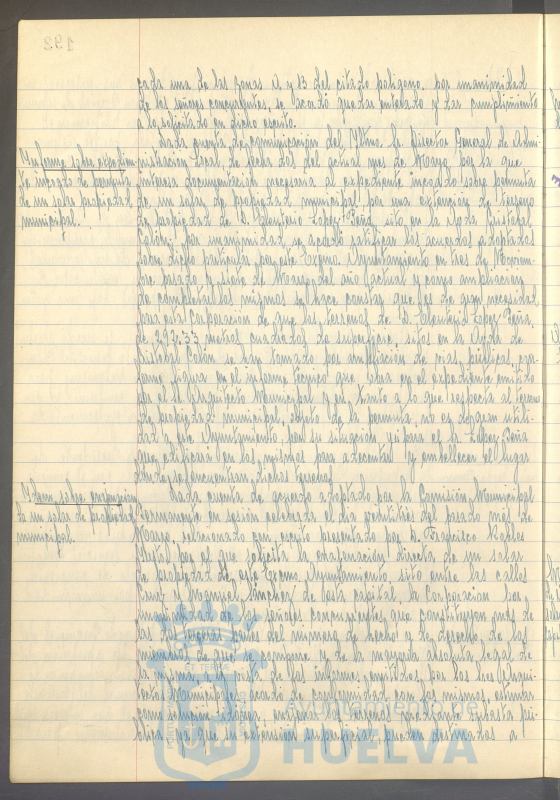 cada una de las zonas A y B del citado polígono, por unanimidad
de los señores concurrentes, se acordó quedar enterados y dar cumplimiento
a lo solicitado en dicho escrito.
Informe sobre expedien-
te incoado de permuta
de un solar propiedad
municipal.
Dada cuenta de comunicación del Iltmo. Sr. Director General de Admi-
nistración Local, de fecha del actual mes de Marzo, por la que
interesa documentación necesaria al expediente incoado sobre permuta
de un solar de propiedad municipal por una extensión de terreno
de propiedad de D. López Peña, sito en la Avda. Cristóbal
Colón, por unanimidad, se acordó ratificar los acuerdos adoptados
sobre dicho particular por este Excmo. Ayuntamiento en tres de Noviem-
bre pasado y siete de Marzo del año actual y como ampliación
de completar los mismos se hace constar que es de gran necesidad
para esta Corporación de que los terrenos de D. López Peña,
de 293,33 metros cuadrados de superficie, sitos en la Avda. de
Cristóbal Colón se han tomado por ampliación de vías públicas, con-
forme figura en el informe técnico que obra en el expediente emitido
por el Sr. Arquitecto Municipal y en tanto a lo que respecta al terreno
de propiedad municipal, objeto de la permuta, no es de gran utili-
dad a este Ayuntamiento, por su situación, y para el Sr. López Peña
que edificará en los mismos para adecentar y embellecer el lugar
donde se encuentran dichos terrenos.
Idem sobre enajenación
de un solar de propiedad
municipal.
Dada cuenta de acuerdo adoptado por la Comisión Municipal
Permanente en sesión celebrada el día veintitrés del pasado mes de
Marzo, relacionado con escrito presentado por D. Francisco Robles
por el que solicita la enajenación directa de un solar
de propiedad de este Excmo. Ayuntamiento, sito entre las calles
Cruz y Manuel Sánchez de esta capital, la Corporación por
unanimidad de los señores concurrentes que constituyen más de
las dos terceras partes del número de hecho y de derecho de los
miembros de que se compone y de la mayoría absoluta legal de
la misma, y a vista de los informes emitidos por los Sres. Arqui-
tectos Municipales, acordó de conformidad con los mismos, estimar
como solución idónea, enajenar los terrenos mediante subasta pú-
blica ya que su extensión superficial, pueden destinarlos a
Ayuntamiento de
HUELVA